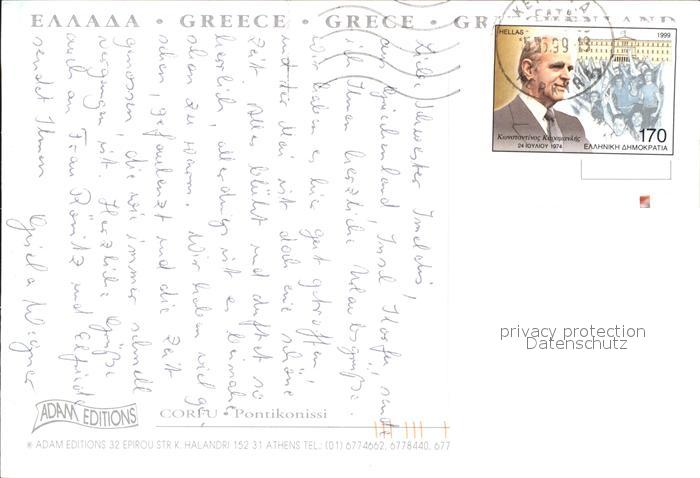 ΕΛΛΑΔΑ • GREECE • GRECE • GR
KERKYRA
HELLAS
1999
Κωνσταντίνος Καραμανλής
24 ΙΟΥΛΙΟΥ 1974
170
ΕΛΛΗΝΙΚΗ ΔΗΜΟΚΡΑΤΙΑ
Liebe Schwester Imelda!
aus Griechenland, Insel Korfu, sende
ich Ihnen herzliche Urlaubsgrüße.
Wir haben es hier gut getroffen!
und der Mai ist doch eine schöne
Zeit. Alles blüht und duftet so
herrlich, allerdings ist es beinahe
schon zu warm. Wir haben viel ge-
sehen, gefaulenzt und die Zeit
genossen, die wie immer schnell
vergangen ist. Herzliche Grüße
auch an Frau und Elfriede
sendet Ihnen Gisela Wagner
privacy protection
Datenschutz
ADAM EDITIONS
CORFU • Pontikonissi
* ADAM EDITIONS 32 EPIROU STR K. HALANDRI 152 31 ATHENS TEL.: (01) 6774662, 6778440, 677